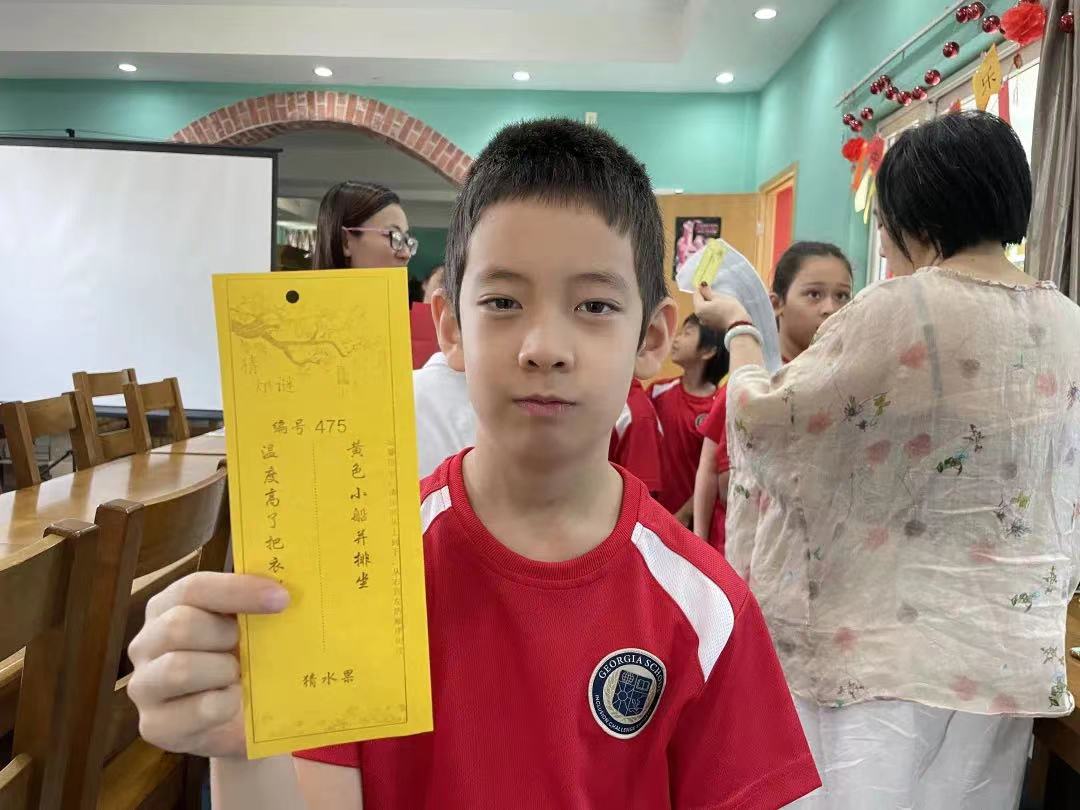 猜
灯谜
编号 475
黄色小船并排坐
温度高了把衣
猜水果
GEORGIA
INCLUSION
乐